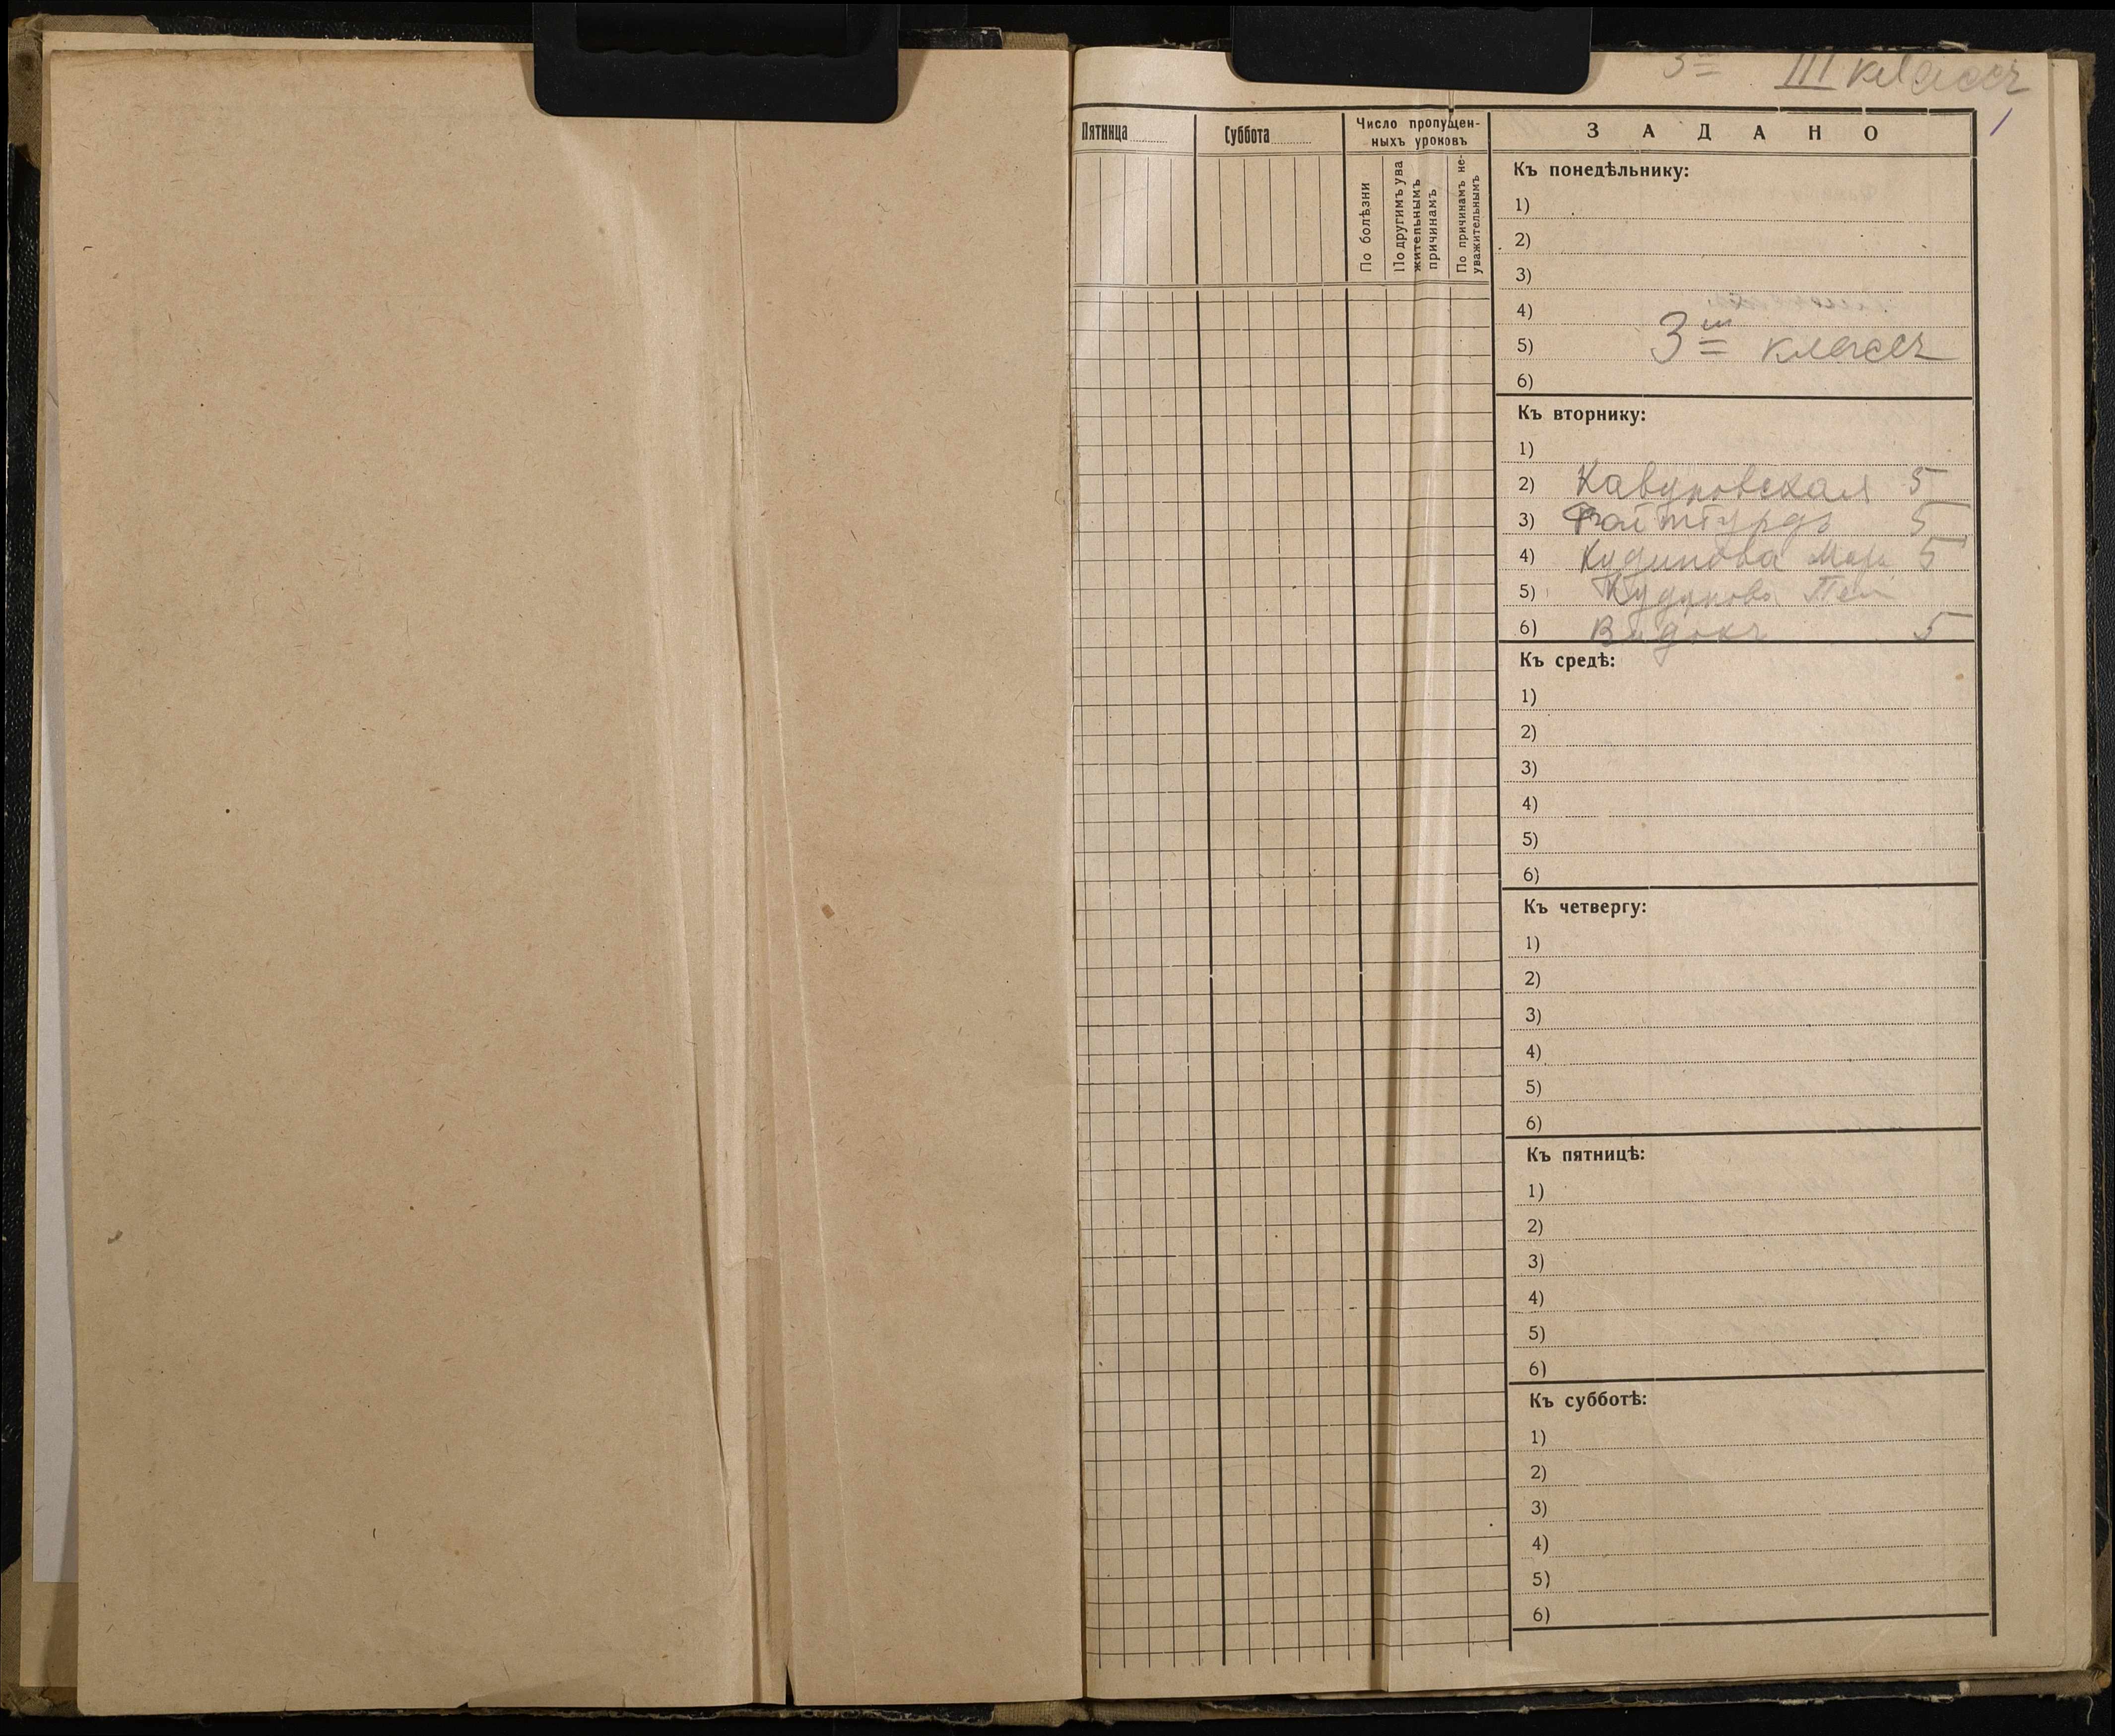 3й III классъ
1
Пятница
Суббота
Число пропущен-
ныхъ уроковъ
По болѣзни
По другимъ ува
жительнымъ
причинамъ
По причинамъ не-
уважительнымъ
ЗАДАНО
Къ понедѣльнику:
1)
2)
3)
4)
5) 3й классъ
6)
Къ вторнику:
1)
2) Кавуновская 5
3) 5
4) Кудинова Мари 5
5) Кудинова
6) Видокъ 5
Къ средѣ:
1)
2)
3)
4)
5)
6)
Къ четвергу:
1)
2)
3)
4)
5)
6)
Къ пятницѣ:
1)
2)
3)
4)
5)
6)
Къ субботѣ:
1)
2)
3)
4)
5)
6)